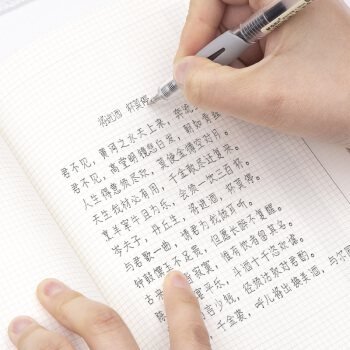 将进酒 杯莫停
君不见，黄河之水天上来，奔流
君不见，高堂明镜悲白发，朝如青丝
人生得意须尽欢，莫使金樽空对月。
天生我材必有用，千金散尽还复来。
烹羊宰牛且为乐，会须一饮三百杯。
岑夫子，丹丘生，将进酒，杯莫停。
与君歌一曲，请君为我倾耳听。
钟鼓馔玉不足贵，但愿长醉不复醒。
古来 寂寞，惟有饮者留其名。
陈 宴平乐，斗酒十千恣欢谑。
言少钱，径须沽取对君酌。
千金裘，呼儿将出换美酒，与尔同